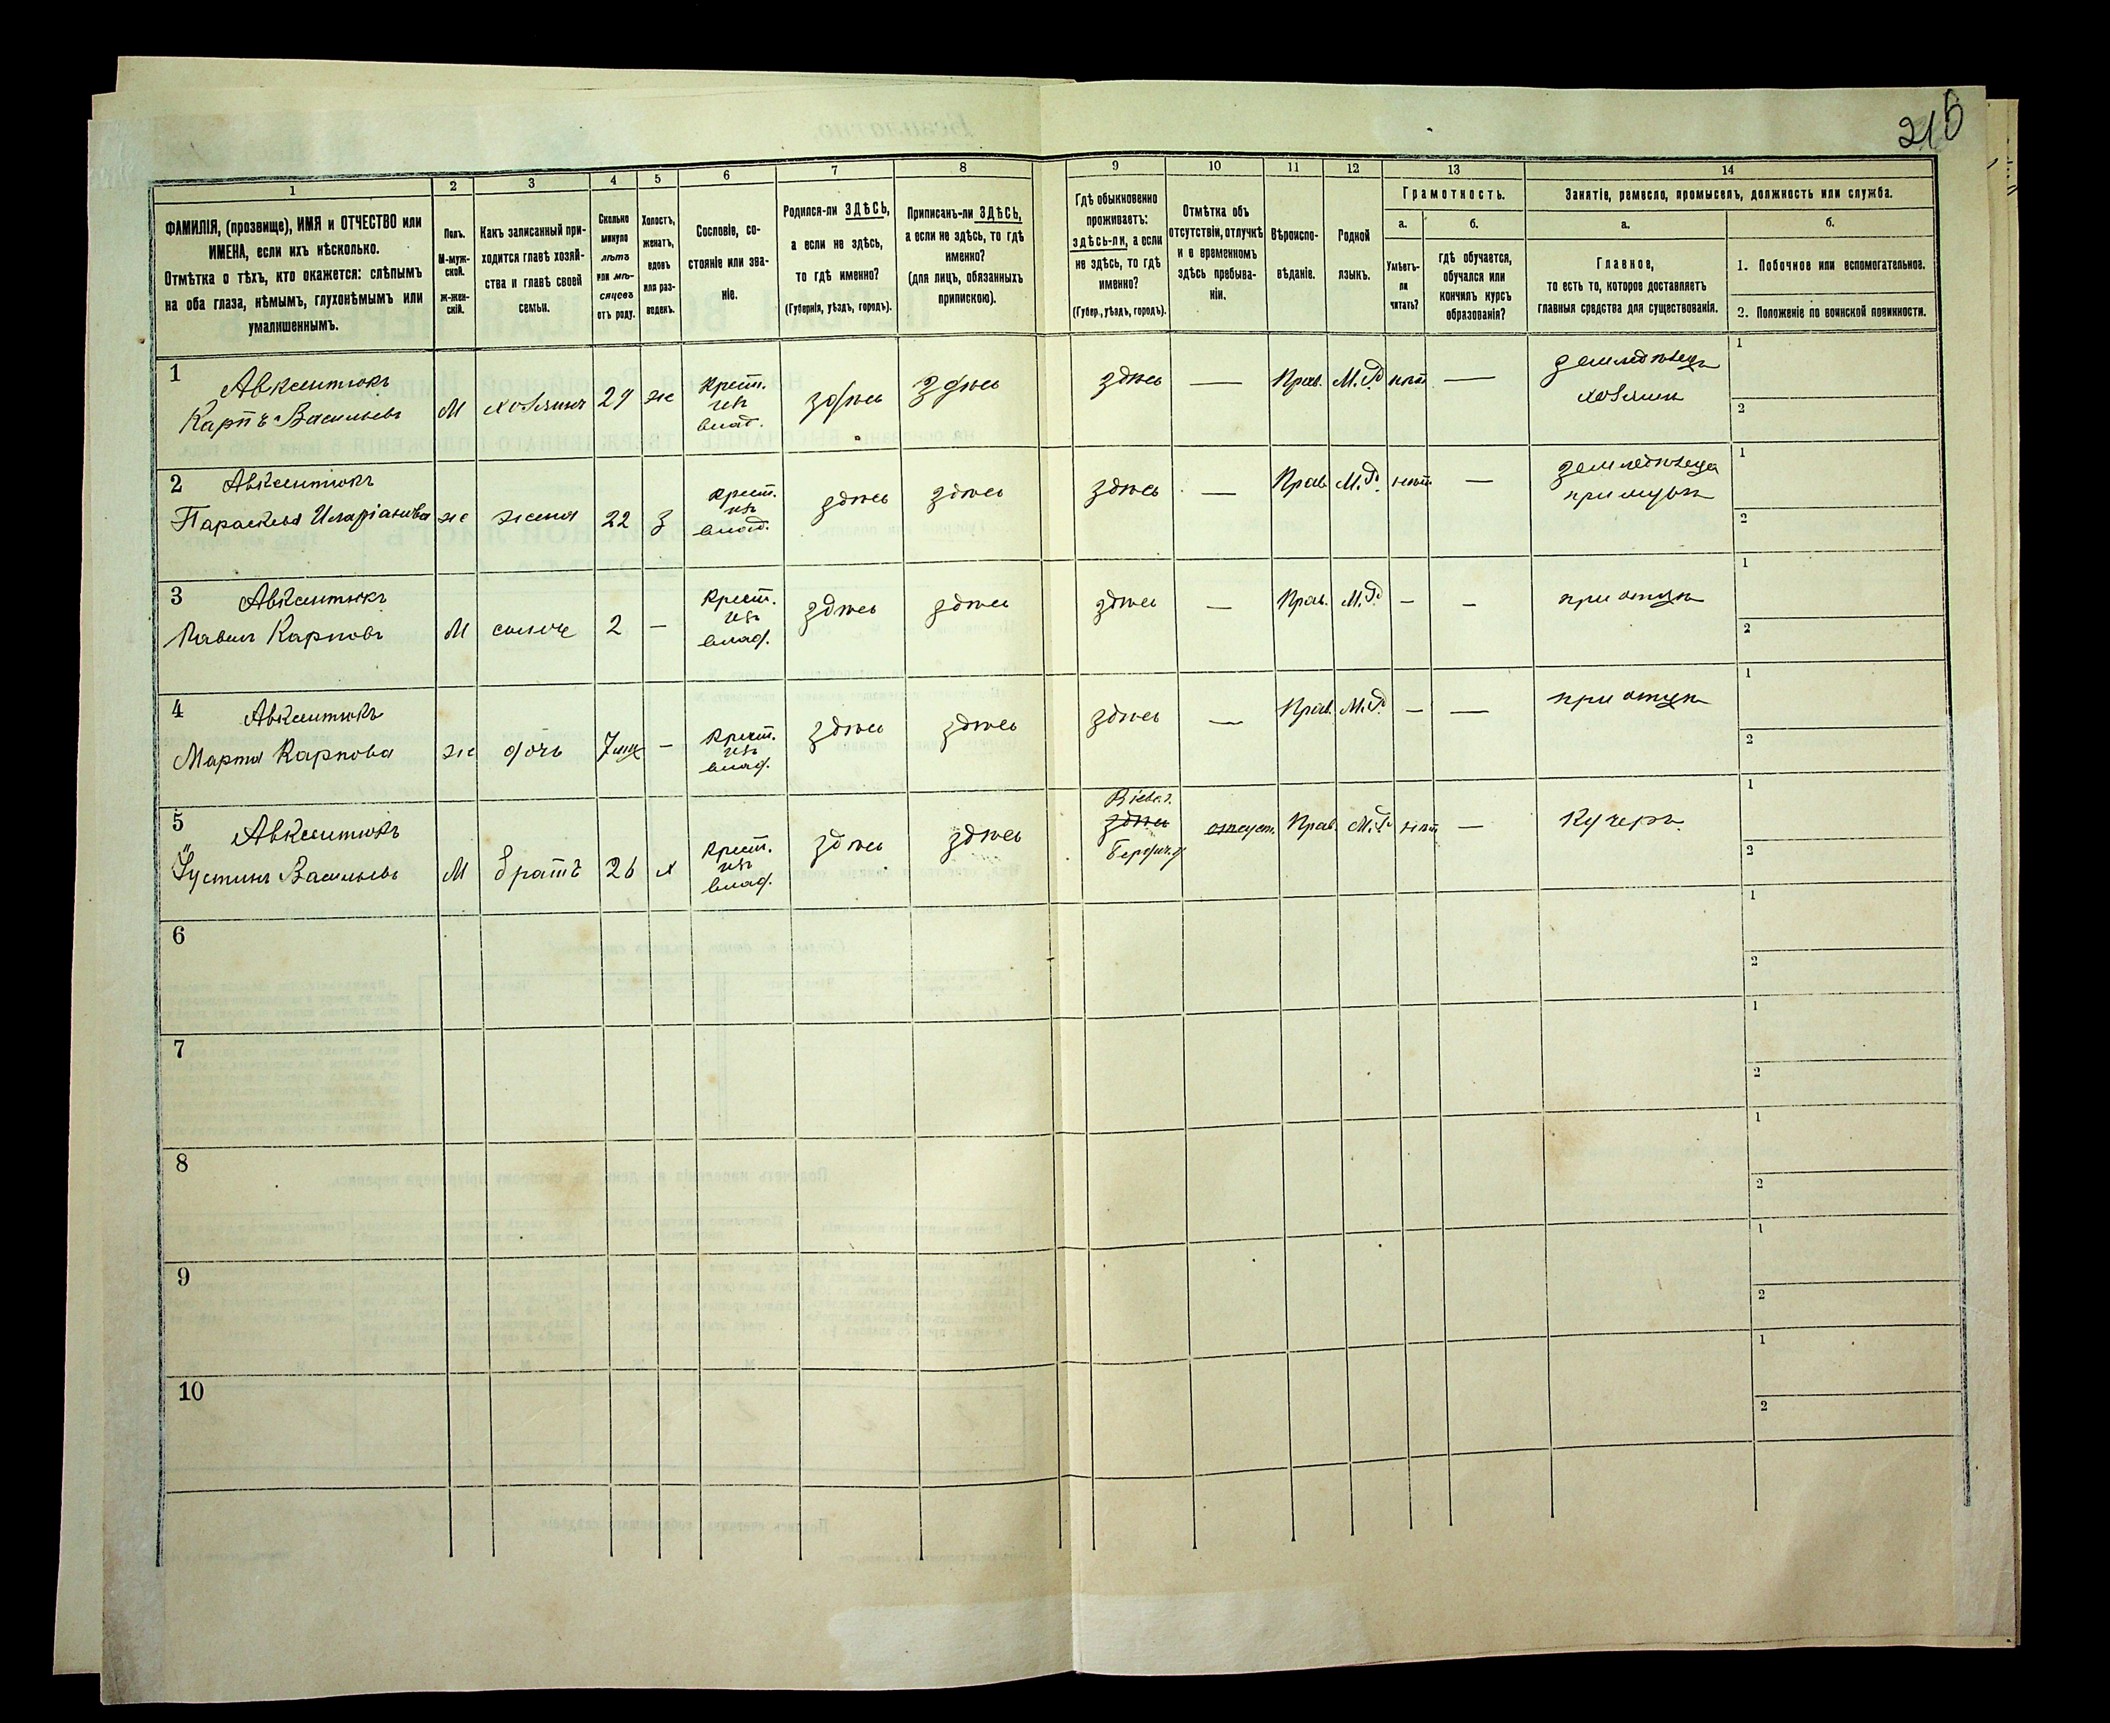 216
1 2 3 4 5 6 7 8 9 10 11 12 13 14
ФАМИЛІЯ, (прозвище), ИМЯ и ОТЧЕСТВО или
ИМЕНА, если ихъ нѣсколько.
Отмѣтка о тѣхъ, кто окажется: слѣпымъ
на оба глаза, нѣмымъ, глухонѣмымъ или
умалишеннымъ.
Полъ.
М-муж-
ской.
ж-жен-
скій.
Какъ записанный при-
ходится главѣ хозяй-
ства и главѣ своей
семьи.
Сколько
минуло
лѣтъ
или мѣ-
сяцевъ
отъ роду.
Холостъ,
женатъ,
вдовъ
или раз-
веденъ.
Сословіе, со-
стояніе или зва-
ніе.
Родился-ли ЗДѢСЬ,
а если не здѣсь,
то гдѣ именно?
(Губернія, уѣздъ, городъ).
Приписанъ-ли ЗДѢСЬ,
а если не здѣсь, то гдѣ
именно?
(для лицъ, обязанныхъ
припискою).
Гдѣ обыкновенно
проживаетъ:
здѣсь-ли, а если
не здѣсь, то гдѣ
именно?
(Губер., уѣздъ, городъ).
Отмѣтка объ
отсутствіи, отлучкѣ
и о временномъ
здѣсь пребыва-
ніи.
Вѣроиспо-
вѣданіе.
Родной
языкъ.
Грамотность.
а.
Умѣетъ-
ли
читать?
б.
гдѣ обучается,
обучался или
кончилъ курсъ
образованія?
Занятіе, ремесло, промыселъ, должность или служба.
а.
Главное,
то есть то, которое доставляетъ
главныя средства для существованія.
б.
1. Побочное или вспомогательное.
2. Положеніе по воинской повинности.
1
Авксентюкъ
Карпъ Васильевъ
М
хозяинъ
29
ж
Крест.
изъ
влад.
здѣсь
здѣсь
здѣсь
—
Прав.
М.Р.
нѣт
—
земледѣлец
хозяин
1
2
2
Авксентюкъ
Параскева Иларіонова
ж
жена
22
З
Крест.
изъ
влад.
здѣсь
здѣсь
здѣсь
—
Прав
М.Р.
нѣт
—
земледѣлца
при мужѣ
1
2
3
Авксентюкъ
Павелъ Карповъ
М
сынъ
2
—
Крест.
изъ
влад.
здѣсь
здѣсь
здѣсь
—
Прав.
М.Р.
—
—
при отцѣ
1
2
4
Авксентюкъ
Марта Карпова
ж
дочь
7 мц
—
Крест.
изъ
влад.
здѣсь
здѣсь
здѣсь
—
Прав.
М.Р.
—
—
при отцѣ
1
2
5
Авксентюкъ
Іустинъ Васильевъ
М
братъ
26
х
Крест.
изъ
влад.
здѣсь
здѣсь
Кіевс.г.
здѣсь
Бердич.у
отсуст.
Прав.
М.Р.
нѣт
—
Кучеръ.
1
2
6
1
2
7
1
2
8
1
2
9
1
2
10
1
2